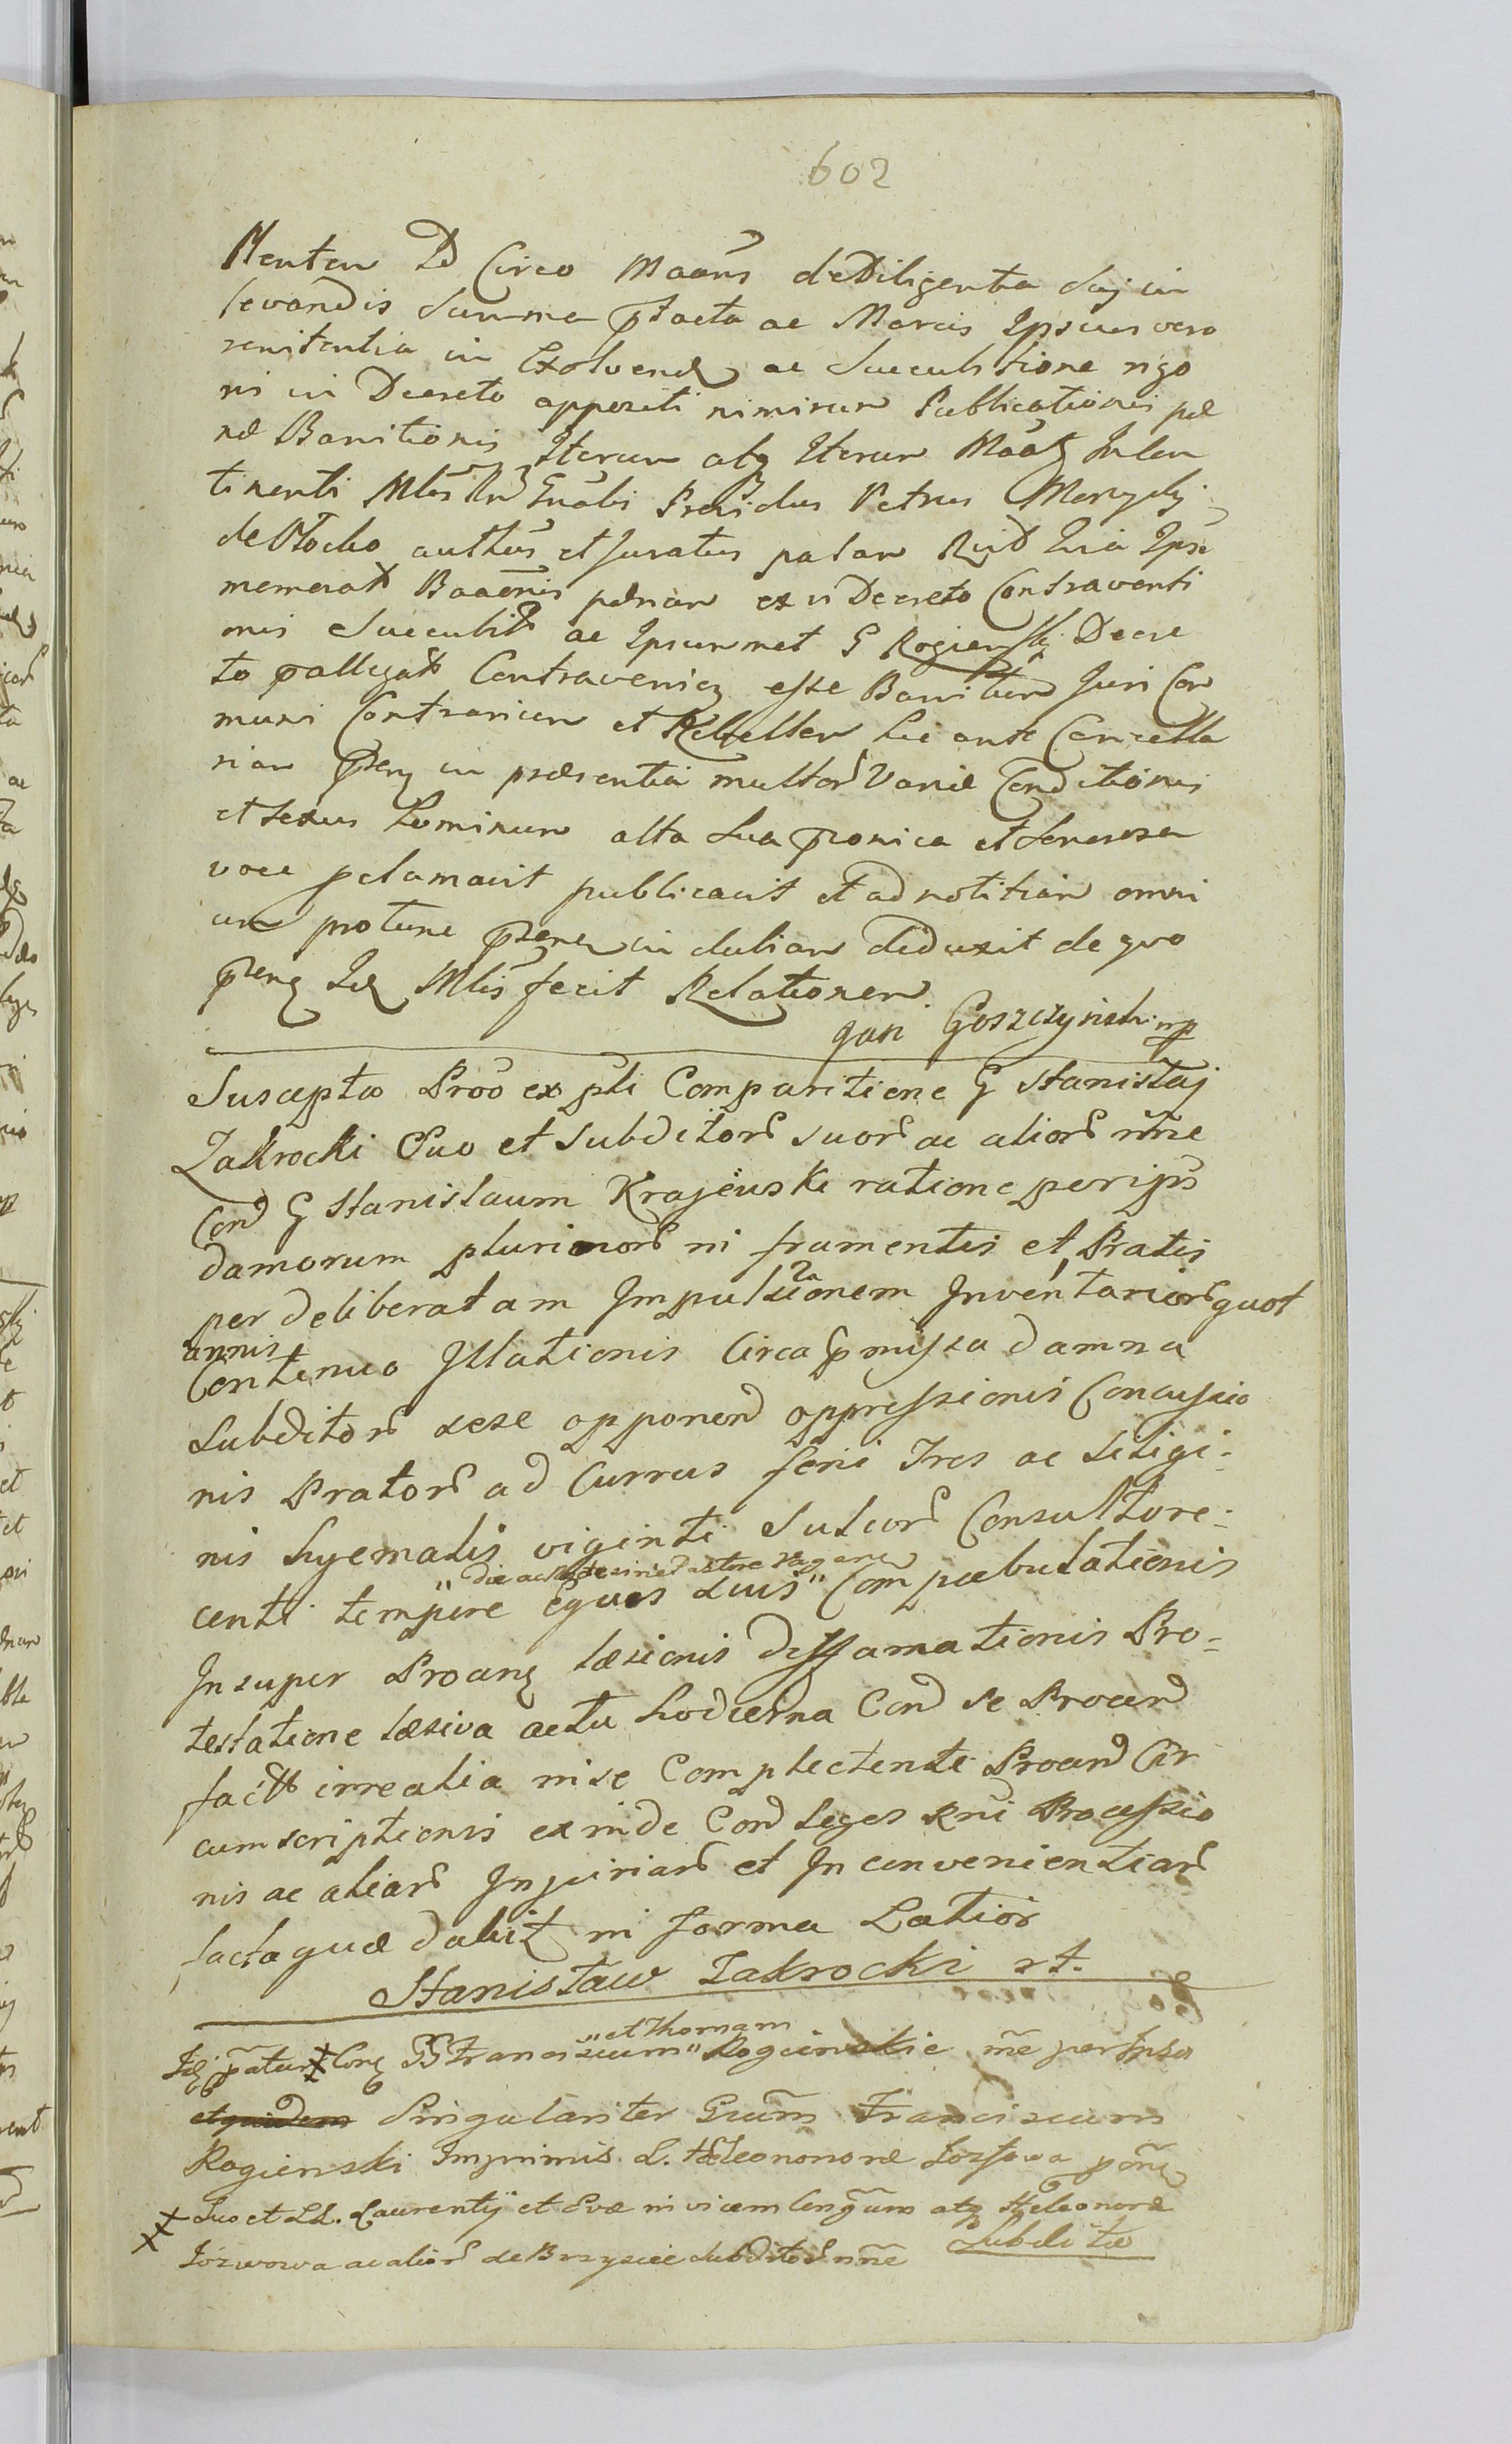 602
Menten Circo Maans de Diligentia Suj in
levandis Summa ptacta ac Marcis Ipsum vero
renitentia in Exolvend ac Succubitione rigo
ris in Decreto appositi nimirum Publicationis pæ
næ Banitionis Iterum atq Iterum
tinenti Providus Petrus
de Płocko authus et Juratus palam
memorat Banonis pænam ex vi Decreto Contraventi
onis Succubit ac Ipsummet G Rogienski Decre
to pallegat Contravenien esse Banitum Juri Com
muni Contrarium et Rebellem hic ante Cancella
riam psen in præsentia multor Variæ Conditionis
et sexus hominum alta Sua pronica et Sonorosa
voce pclamavit publicavit et ad notitiam omni
um pro tunc psenen in dubiam deduxit de quo
psenq Idq Mlis fecit Relationem
Jan Goszczynski mp
Suscepta Proo ex pti Comparitione G Stanislaj
Zakrocki Suo et Subditor suor ac alior nne
Con G Stanislaum Krajewski ratione per ips
damorum plurimor in frumentis et Pratis
per deliberatam Impulsionem Inventarior quot
annis
Continuo Illationis Circa pmissa damna
Subditor sese opponend oppressionis Concussio
nis Prator ad Currus feni Tres ac Siligi-
nis hyemalis viginti Sulcor Consultore-
centi tempore Equos suis" Compæbulationis
Insuper Proanq læsionis diffamationis Pro-
testatione læsiva actu hodierna Con se Procand
fact irrealia in se Complectente Procand Cir
cumscriptionis exinde Con Leges Rni Processio
nis ac aliar Injuriar et Inconvenientiar
facta quæ dabit in forma Latior
Stanisław Zakrocki rt.
"et Thomam
Idq patur ‡ Conq GG Franciscum" Rogienskie nne per Ipsa
et quidem Singulariter Gnum Franciscum
Rogienski Imprimis L. Heleonoræ
‡ Suo et LL. Laurentÿ et Evæ invicem Congum atq Heleonoræ
‡ Jozwowa ac alior de Brzyscie Subditor nne Subditæ